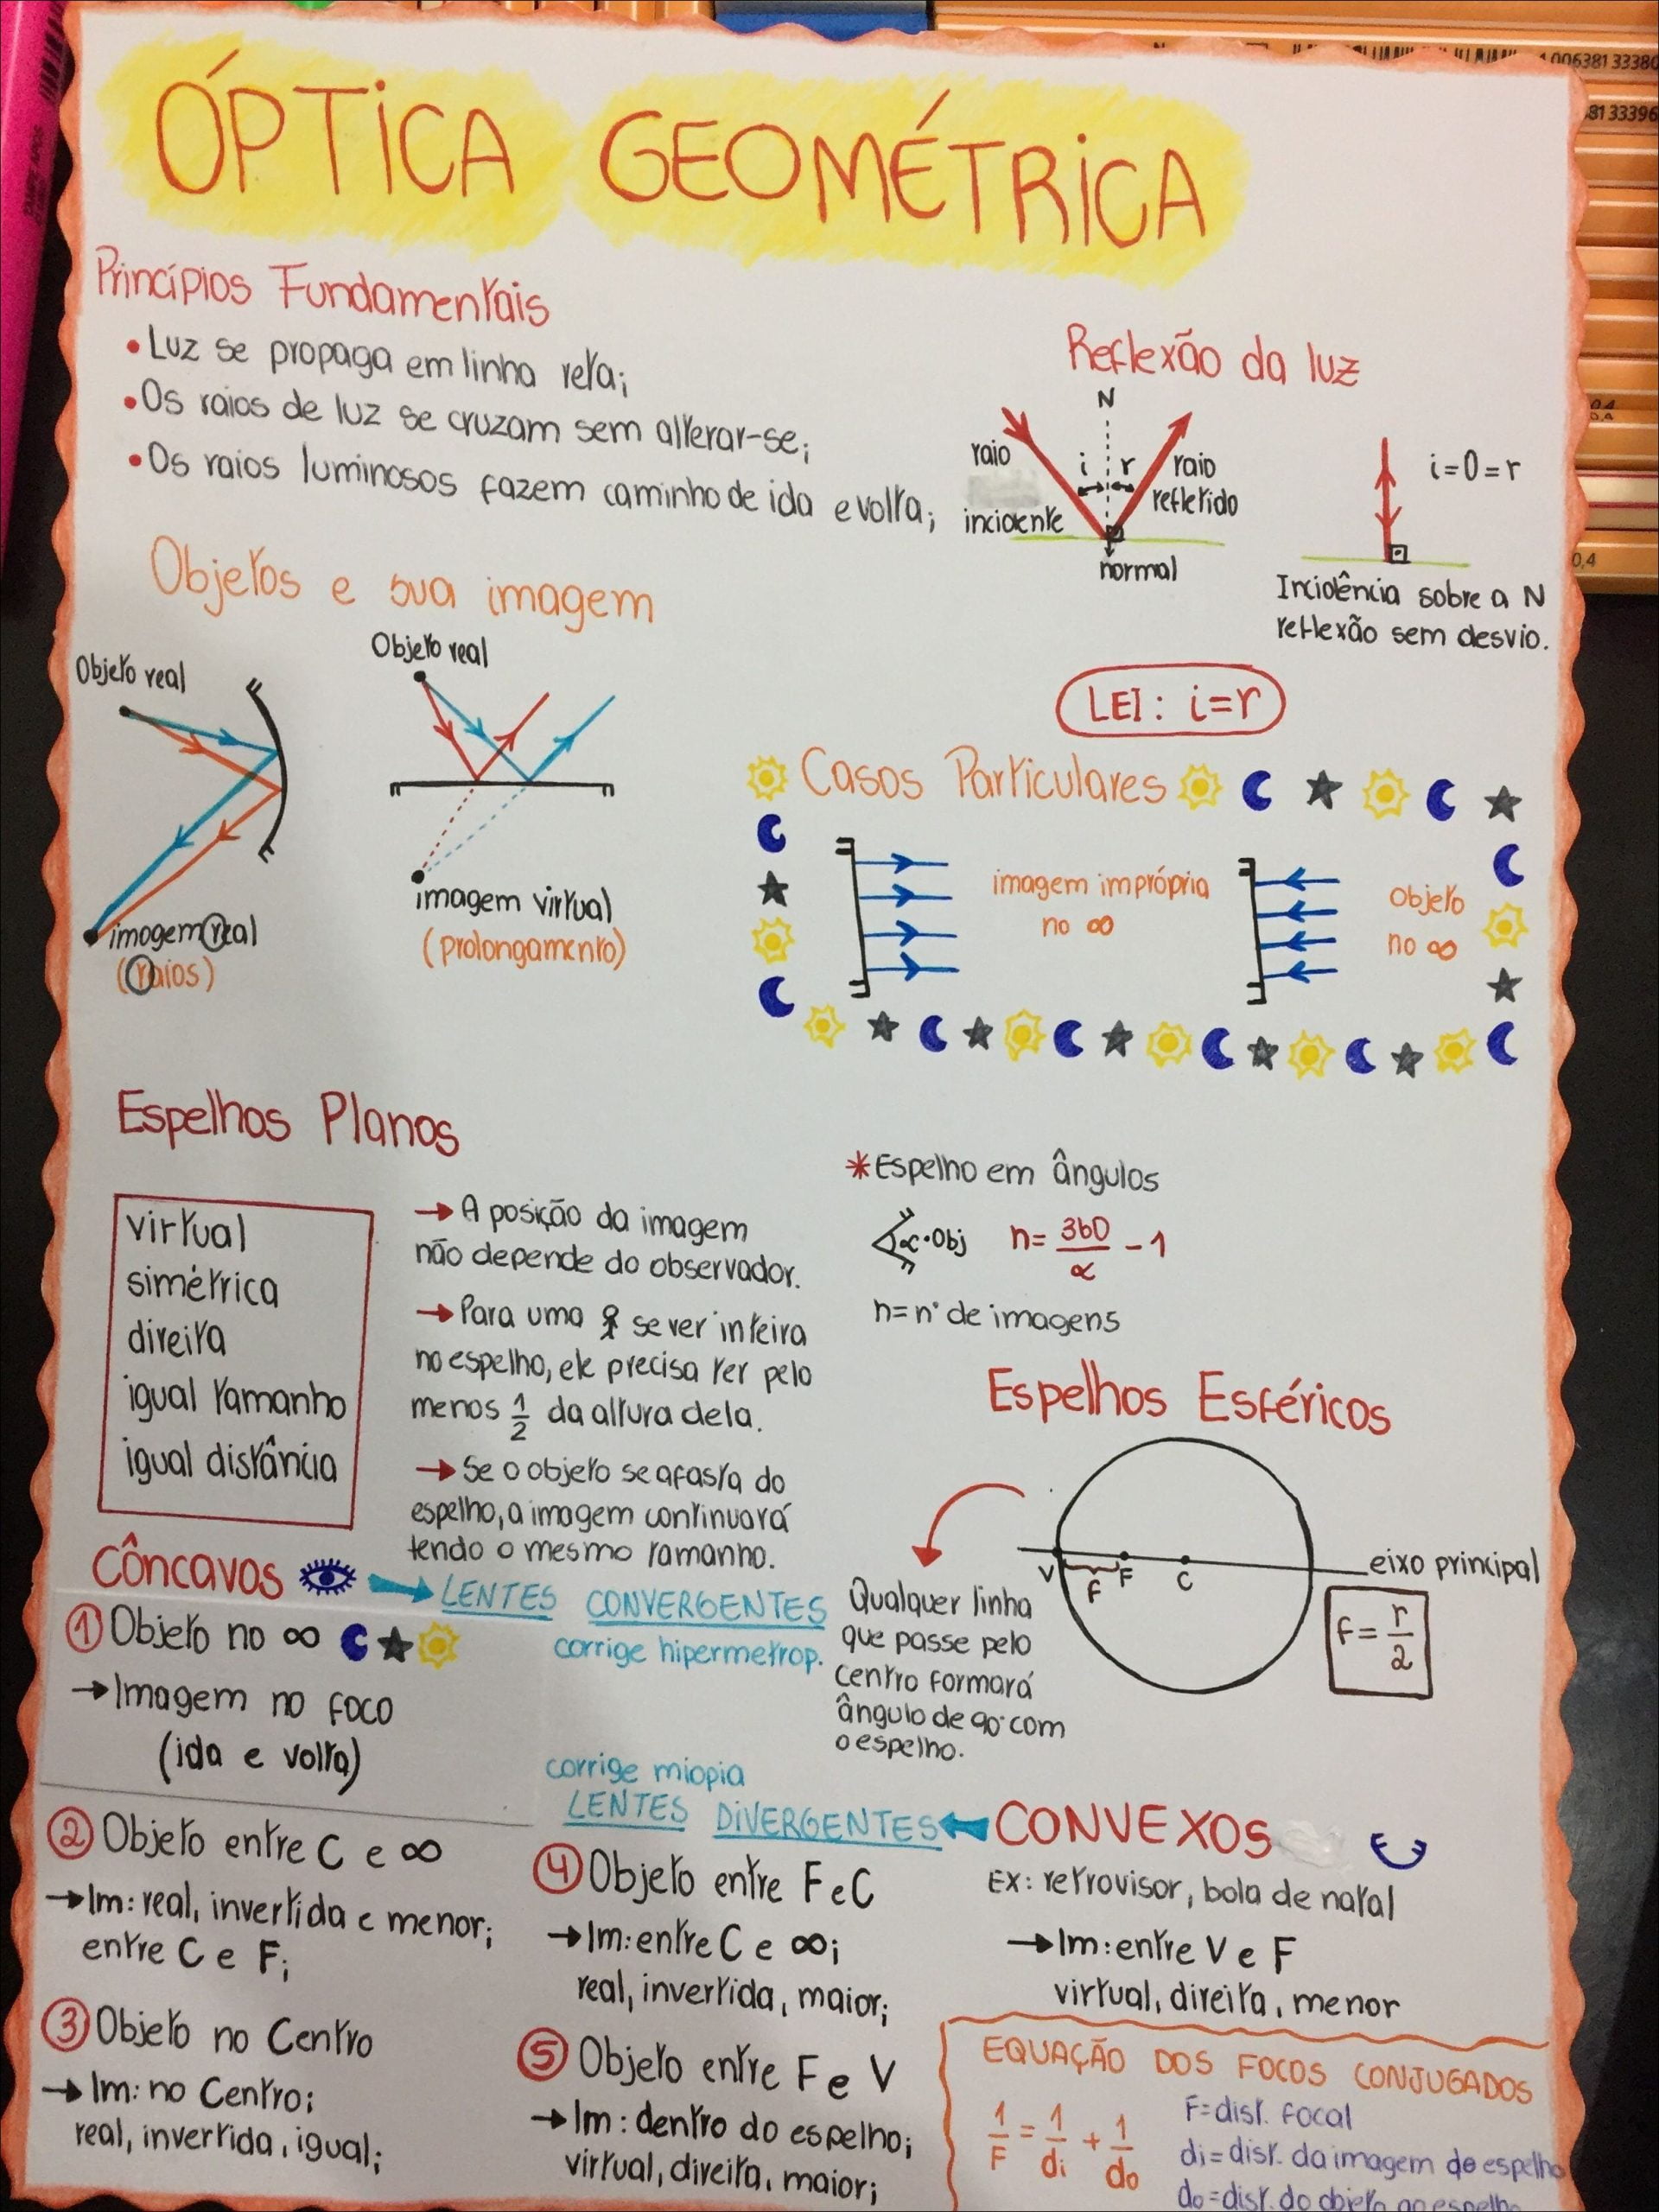 ÓPTICA GEOMÉTRICA
Princípios Fundamentais
• Luz se propaga em linha reta;
• Os raios de luz se cruzam sem alterar-se;
• Os raios luminosos fazem caminho de ida e volta;
Reflexão da luz
N
raio
incidente
i
r
raio
refletido
normal
i=0=r
Incidência sobre a N
reflexão sem desvio.
LEI: i=r
Objetos e sua imagem
Objeto real
imagem real
(raios)
Objeto real
imagem virtual
(prolongamento)
Casos Particulares
imagem imprópria
no ∞
objeto
no ∞
Espelhos Planos
virtual
simétrica
direita
igual tamanho
igual distância
→ A posição da imagem
não depende do observador.
→ Para uma se ver inteira
no espelho, ele precisa ter pelo
menos 1/2 da altura dela.
→ Se o objeto se afasta do
espelho, a imagem continuará
tendo o mesmo tamanho.
* Espelho em ângulos
α • Obj
n= 360/α - 1
n=n° de imagens
Espelhos Esféricos
V
f
F
C
eixo principal
f = r/2
Qualquer linha
que passe pelo
centro formará
ângulo de 90° com
o espelho.
Côncavos
→ LENTES CONVERGENTES
corrige hipermetrop.
① Objeto no ∞
→ Imagem no foco
(ida e volta)
② Objeto entre C e ∞
→ Im: real, invertida e menor;
entre C e F;
③ Objeto no Centro
→ Im: no Centro;
real, invertida, igual;
④ Objeto entre F e C
→ Im: entre C e ∞;
real, invertida, maior;
⑤ Objeto entre F e V
→ Im: dentro do espelho;
virtual, direita, maior;
corrige miopia
LENTES DIVERGENTES ← CONVEXOS
Ex: retrovisor, bola de natal
→ Im: entre V e F
virtual, direita, menor
EQUAÇÃO DOS FOCOS CONJUGADOS
1/F = 1/di + 1/do
F= dist. focal
di = dist. da imagem do espelho
do = dist. do objeto ao espelho